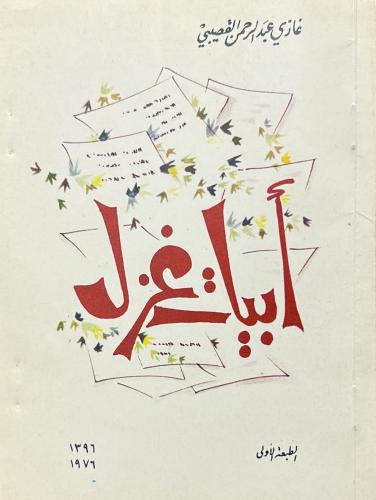 غازي عبد الرحمن القصيبي
أبيات غزل
الطبعة الأولى
١٣٩٦
١٩٧٦